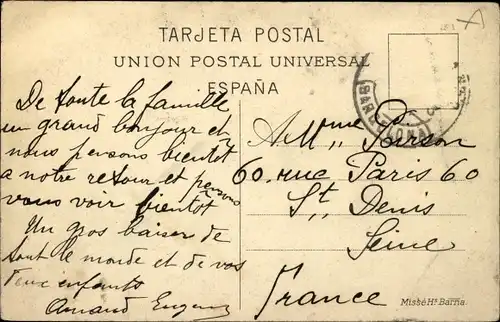 TARJETA POSTAL
UNION POSTAL UNIVERSAL
ESPAÑA
De toute la famille
un grand bonjour et
nous pensons bientot
a notre retour et pensons
vous voir bientot
Un gros baiser de
tout le monde et de vos
deux enfants
Armand Eugene
A Mme Poirson
60. rue Paris 60
St Denis
Seine
France
BARCELONA
Missé Hs Barna